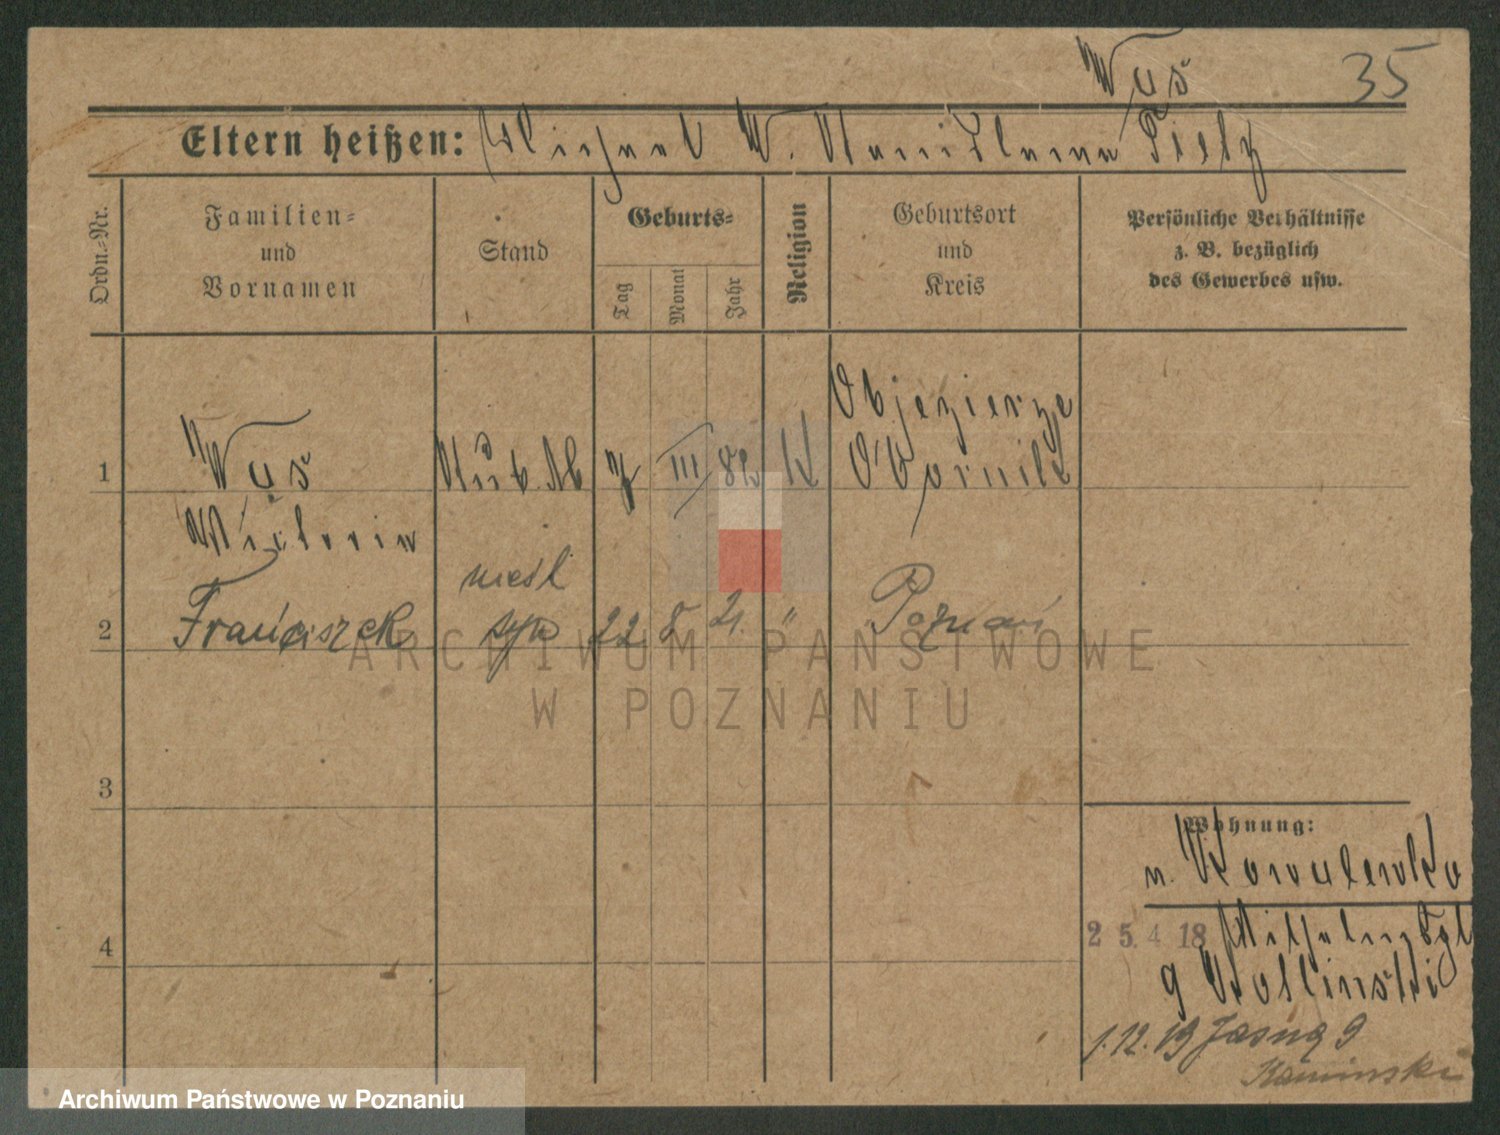 Wuś
35
Eltern heißen: Michael W. Stanislawa Pietz
Ordn.-Nr.
Familien- und Vornamen
Stand
Geburts-
Tag
Monat
Jahr
Religion
Geburtsort und Kreis
Persönliche Verhältnisse
z. B. bezüglich
des Gewerbes usw.
1
Wuś
7 III 82 K
Objezierze
Obornik
2
Franciszek
nieśl
syn
22 8 21. "
Poznań
3
4
Wohnung:
n. Kowalewska
2 5. 4 18
9 Kollinski
1.12.19 Jasna 9
Kaminski
ARCHIWUM PAŃSTWOWE
W POZNANIU
Archiwum Państwowe w Poznaniu